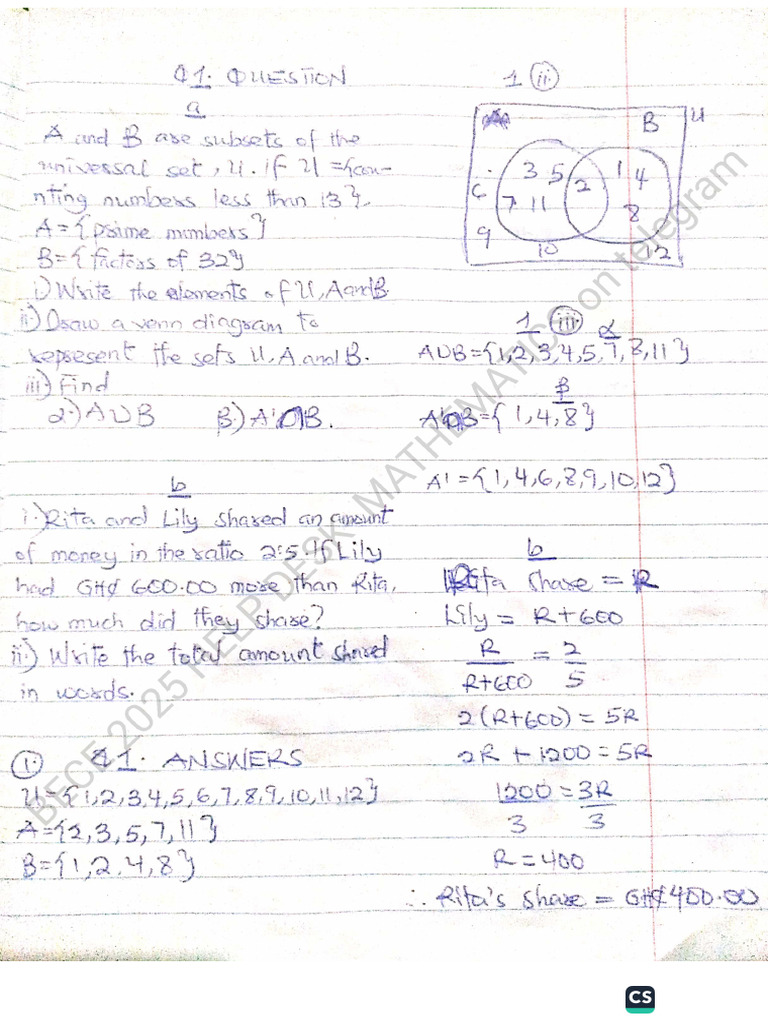 Q1. QUESTION
a
A and B are subsets of the
universal set, U. if U = {cou-
nting numbers less than 13}.
A = {prime numbers}
B = {factors of 32}
i) Write the elements of U, A and B.
ii) Draw a venn diagram to
represent the sets U, A and B.
iii) Find
2.) A∪B β.) A'∩B.
b
i.) Rita and Lily shared an amount
of money in the ratio 2:5. If Lily
had GH₵ 600.00 more than Rita,
how much did they share?
ii.) Write the total amount shared
in words.
1. Q1. ANSWERS
U = {1,2,3,4,5,6,7,8,9,10,11,12}
A = {2,3,5,7,11}
B = {1,2,4,8}
1 (ii)
B U
3 5 2 1 4
6 7 11 8
9 10 12
1 (iii) α
A∪B = {1,2,3,4,5,7,8,11}
β
A'∩B = {1,4,8}
A' = {1,4,6,8,9,10,12}
b
Rita share = R
Lily = R+600
R/R+600 = 2/5
2(R+600) = 5R
2R + 1200 = 5R
1200/3 = 3R/3
R = 400
∴ Rita's share = GH₵400.00
BECE 2025 HELP DESK MATHEMATICS on telegram
CS